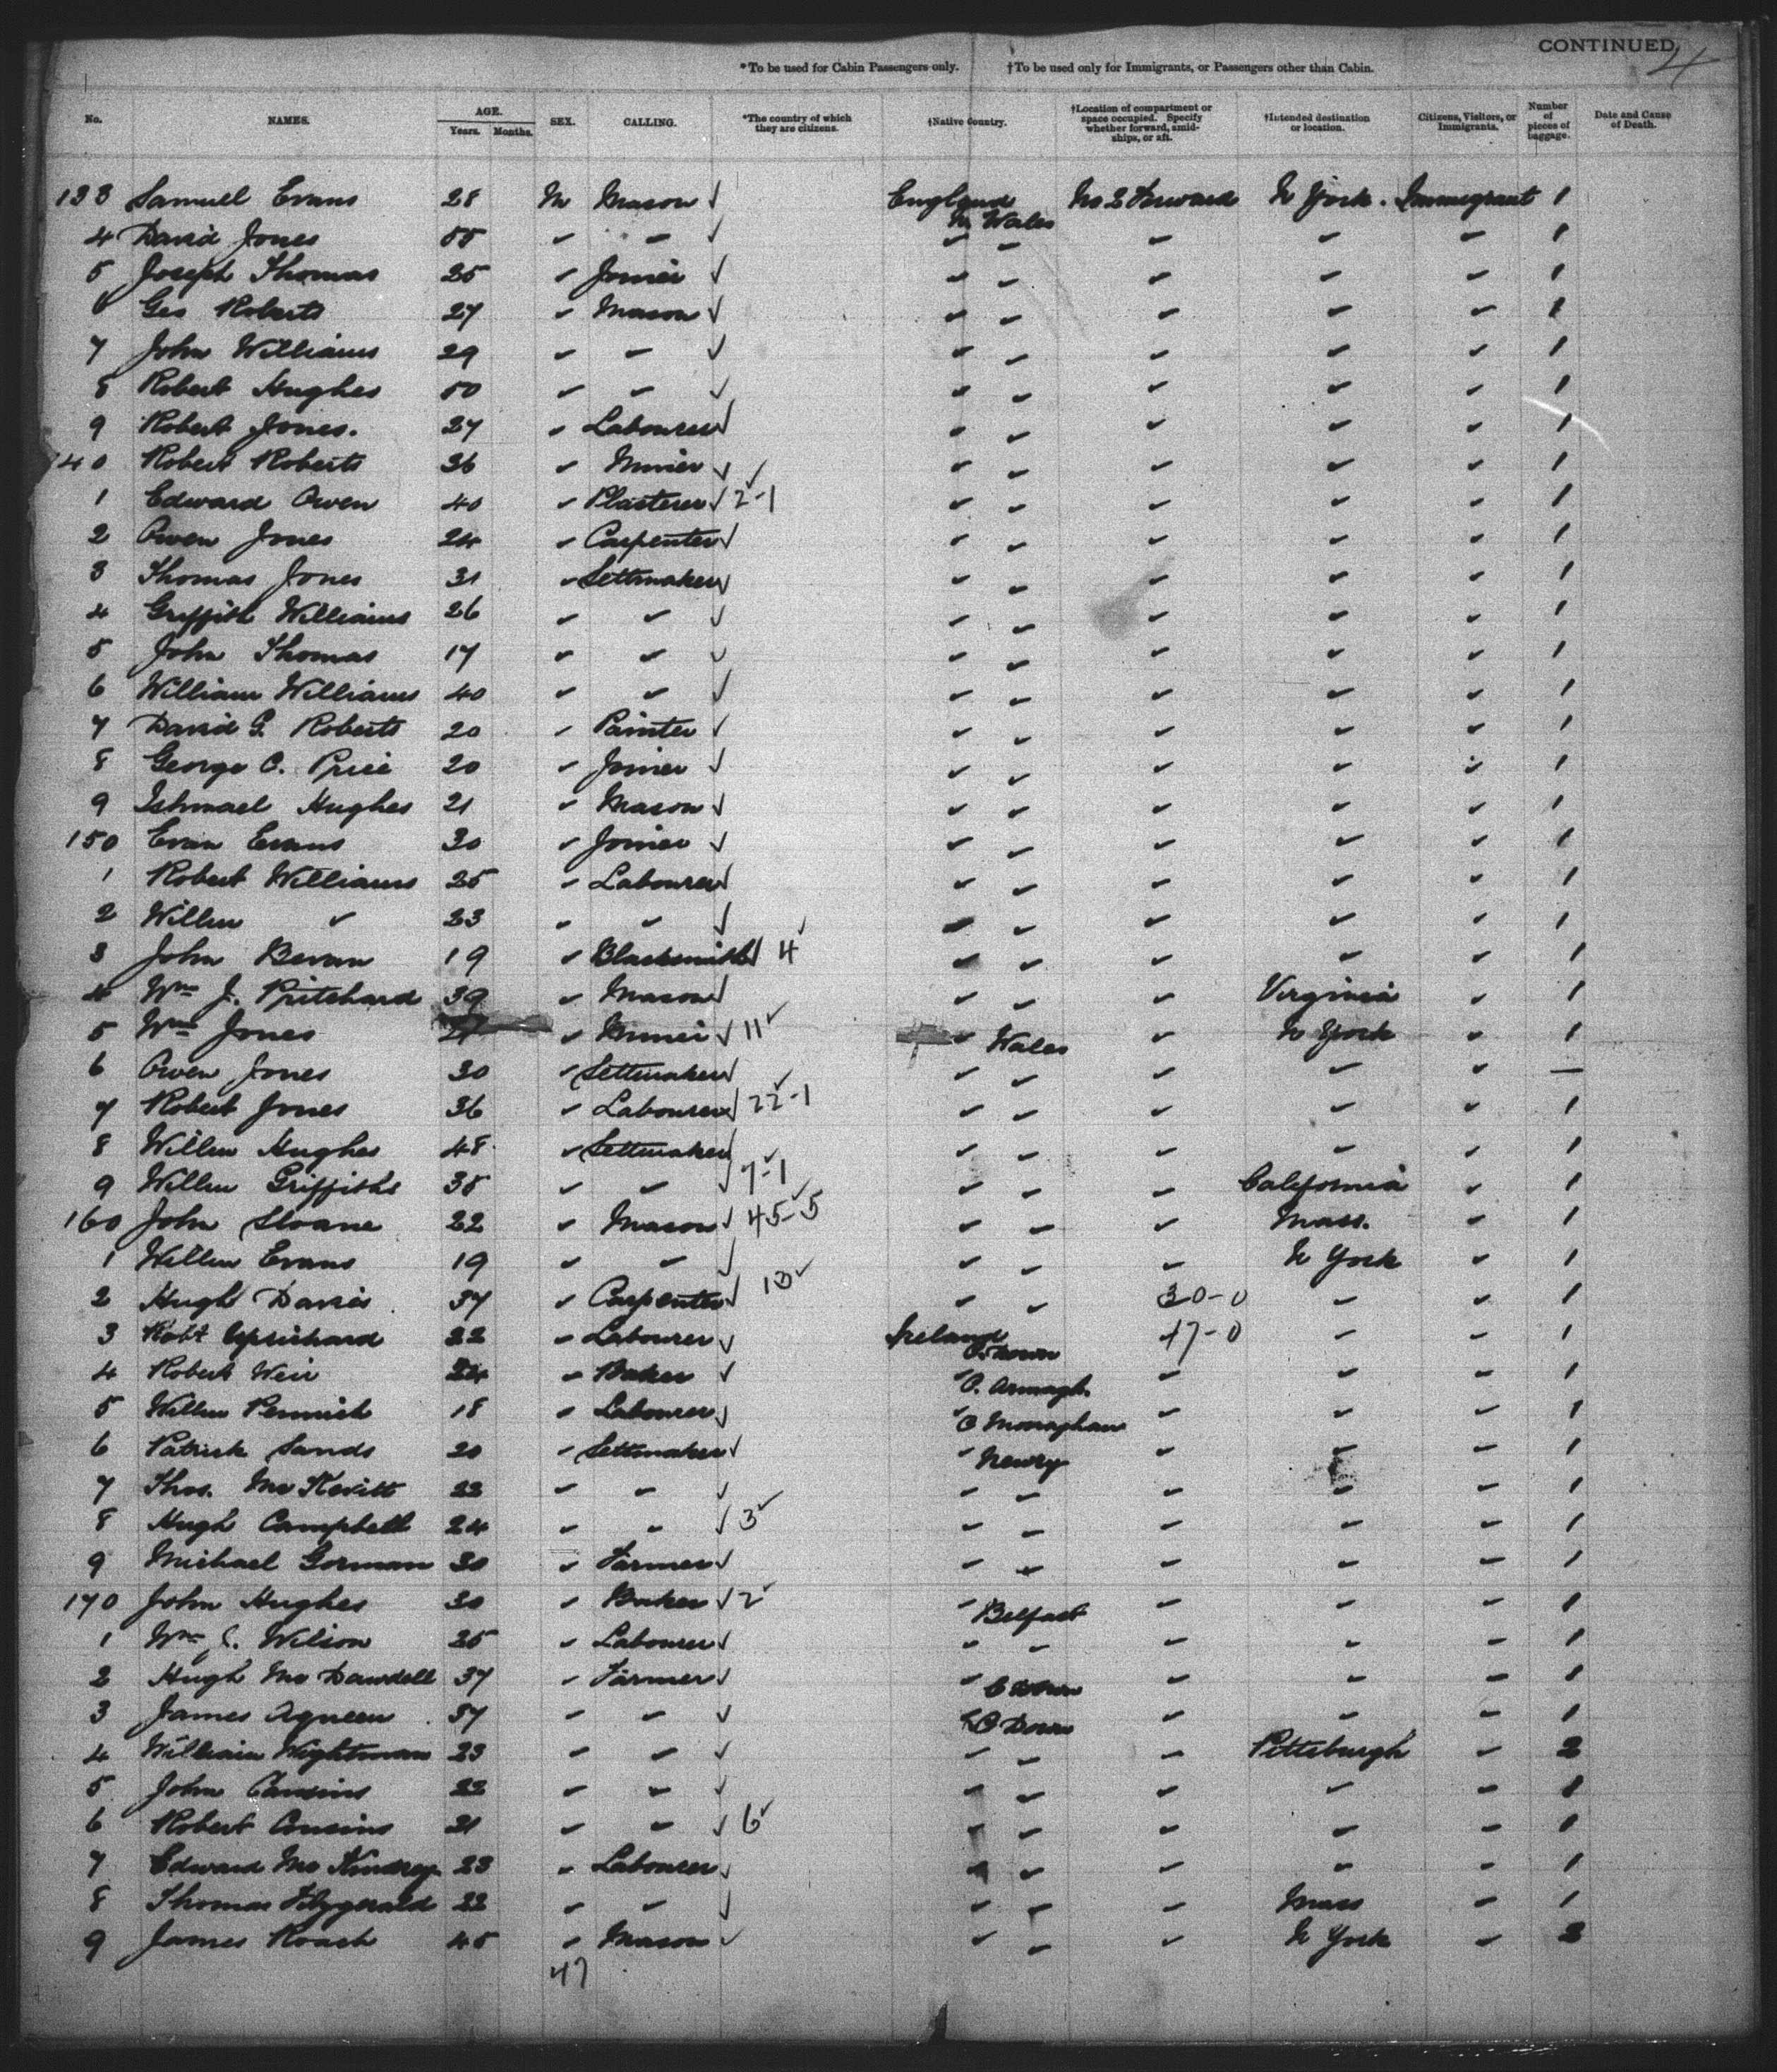 CONTINUED. 4
*To be used for Cabin Passengers only. †To be used only for Immigrants, or Passengers other than Cabin.
No. NAMES. AGE. Years. Months. SEX. CALLING. *The country of which they are citizens. †Native Country. †Location of compartment or space occupied. Specify whether forward, amidships, or aft. †Intended destination or location. Citizens, Visitors, or Immigrants. Number of pieces of baggage. Date and Cause of Death.
133 Samuel Evans 28 M Mason ✓ England N. Wales No 2 Forward N York. Immigrant 1
4 David Jones 55 " " ✓ " " " " " 1
5 Joseph Thomas 25 " Joiner ✓ " " " " " 1
6 Geo Roberts 27 " Mason ✓ " " " " " 1
7 John Williams 29 " " ✓ " " " " " 1
8 Robert Hughes 50 " " ✓ " " " " " 1
9 Robert Jones. 27 " Labourer ✓ " " " " " 1
140 Robert Roberts 36 " Minier ✓ " " " " " 1
1 Edward Owen 40 " Plasterer ✓ 2-1 " " " " " 1
2 Owen Jones 24 " Carpenter ✓ " " " " " 1
3 Thomas Jones 31 " Settmaker ✓ " " " " " 1
4 Griffith Williams 26 " " ✓ " " " " " 1
5 John Thomas 17 " " ✓ " " " " " 1
6 William Williams 40 " " ✓ " " " " " 1
7 David G. Roberts 20 " Painter ✓ " " " " " 1
8 George O. Price 20 " Joiner ✓ " " " " " 1
9 Ishmael Hughes 21 " Mason ✓ " " " " " 1
150 Evan Evans 30 " Joiner ✓ " " " " " 1
1 Robert Williams 25 " Labourer ✓ " " " " " 1
2 Willm " 23 " " ✓ " " " " " 1
3 John Bevan 19 " Blacksmith ✓ 4 " " " " " 1
4 Wm J. Pritchard 39 " Mason ✓ " " " Virginia " 1
5 Wm Jones " Minier ✓ 11 " Wales " N York " 1
6 Owen Jones 30 " Settmaker ✓ " " " " " —
7 Robert Jones 36 " Labourer ✓ 22-1 " " " " " 1
8 Willm Hughes 48 " Settmaker ✓ " " " " " 1
9 Willm Griffiths 35 " " ✓ 7-1 " " " California " 1
160 John Sloane 22 " Mason ✓ 45-5 " " " Mass. " 1
1 Willm Evans 19 " " ✓ " " " N York " 1
2 Hugh Davis 37 " Carpenter ✓ 13 " " 30-0 " " 1
3 Robt Uprichard 22 " Labourer ✓ Ireland C. Down 17-0 " " 1
4 Robert Weir 24 " Baker ✓ " C. Armagh. " " " 1
5 Willm 18 " Labourer ✓ " C Monaghan " " " 1
6 Patrick Sands 20 " Settmaker ✓ " Newry " " " 1
7 Thos. McKevitt 22 " " ✓ " " " " " 1
8 Hugh Campbell 24 " " ✓ 3 " " " " " 1
9 Michael Gorman 30 " Farmer ✓ " " " " " 1
170 John Hughes 30 " Baker ✓ 2 " Belfast " " " 1
1 Wm J. Wilson 25 " Labourer ✓ " " " " " 1
2 Hugh McDowdell 37 " Farmer ✓ " C Down " " " 1
3 James Agneew 37 " " ✓ " C Down " " " 1
4 William Wightman 23 " " ✓ " " " Pittsburgh " 2
5 John Cousins 22 " " ✓ " " " " " 1
6 Robert Cousins 21 " " ✓ 6 " " " " " 1
7 Edward 23 " Labourer ✓ " " " " " 1
8 Thomas Fitzgerald 22 " " ✓ " " " Mass " 1
9 James Roach 45 " Mason ✓ " " " N York " 2
47